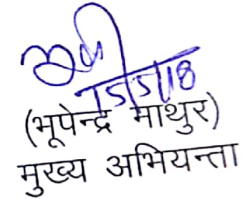 15/5/18
(भूपेन्द्र माथुर)
मुख्य अभियन्ता